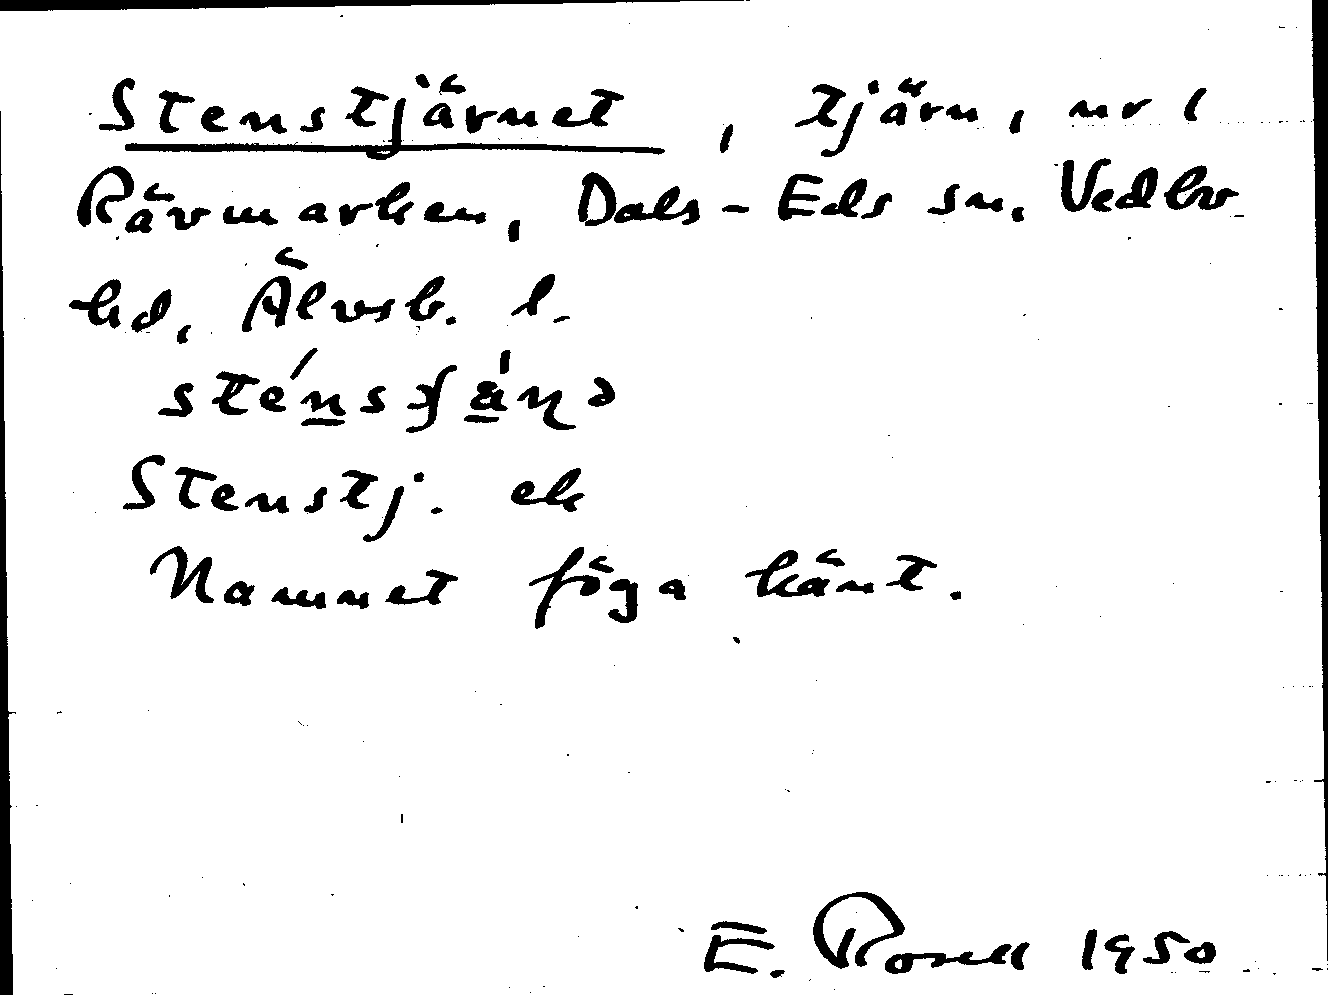 Stenstjärnet, tjärn, nr 1
Rävmarken, Dals-Eds sn. Vedbo
hd, Älvsb. l.
sténsʃä́ɳə
Stenstj. ek
Namnet föga känt.
E. Rosell 1950